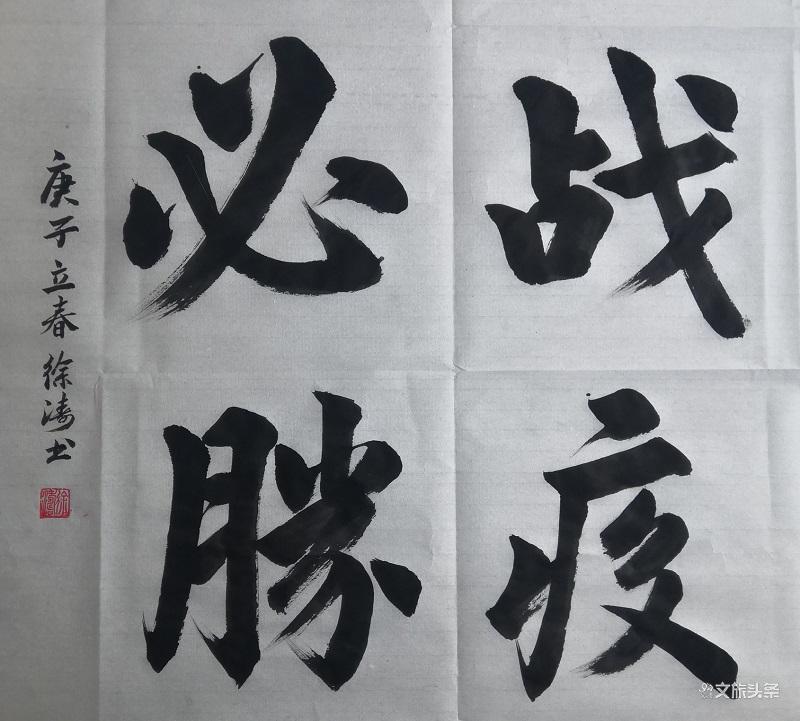 战疫
必勝
庚子立春徐涛书
徐涛
文旅头条